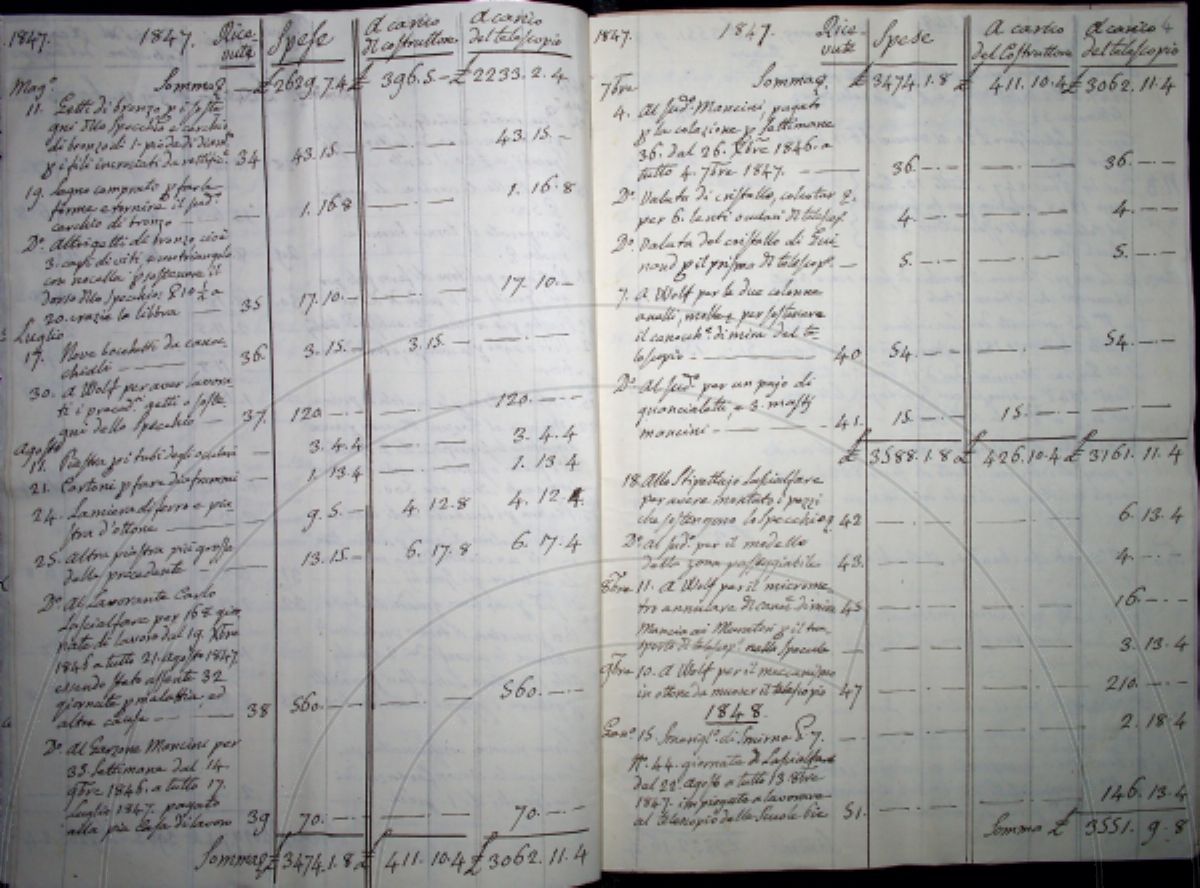 1847. 1847. Rice- Spese A carico A carico
vute Di costruttore del telescopio
Mag.o Somma £ 2629.7.4 £ 396.5.- £ 2233.2.4
11. Getti di bronzo p i soste
gni dello Specchio e cerchio
di bronzo di 1. piede di diam.
p i fili incrociati da 34 43.15.- 43.15.-
19. Legno comprato p farle
forme e tornire il sud.o
cerchio di bronzo 1.16.8 1.16.8
D.o Altri getti di bronzo, cioè
3. capi di viti e un triangolo
con nocella p sostenere il
dorso dello Specchio: 10 ½ a
20. crazie la libbra 35 17.10.- 17.10.-
Luglio
17. Nove bocchetti da canoc-
chiali 36. 3.15.- 3.15.-
30. A Wolf per aver lavora
ti i preced.i getti o soste-
gni dello Specchio 37. 120 120.-
Agosto
11. Piastra p i tubi degli oculari 3.4.4 3.4.4
21. Cartoni p fare diaframmi 1.13.4 1.13.4
24. Lamiera di ferro e pia
stra d'ottone 9.5.- 4.12.8 4.12.4
25. Altra piastra più grossa
della precedente 13.15.- 6.17.8 6.17.4
D.o Al Lavorante Carlo
Lascialfare per 168 gior
nate di lavoro dal 19. Xbre
1846 a tutto 21. Agosto 1847.
essendo stato assente 32
giornate p malattia, ed
altre cause 38 560.- 560.-
D.o Al Garzone Mancini per
35. Settimane dal 14
9bre 1846. a tutto 17.
Luglio 1847. pagato
alla pia Casa di lavoro 39 70.- 70.-
Somma £ 3474.1.8 £ 411.10.4 £ 3062.11.4
1847. 1847. Rice- Spese A carico A carico 4
vute del Costruttore del telescopio
7bre Somma £ 3474.1.8 £ 411.10.4 £ 3062.11.4
4. Al sud.o Mancini, pagato
p la colazione p Settimane
36. dal 26. Xbre 1846. a
tutto 4. 7bre 1847. 36.- 36.-
D.o Valuta di cristallo,
per 6. lenti oculari di telescop. 4.- 4.-
D.o Valuta del cristallo di Gui
naud p il prisma di telescop.o 5.- 5.-
7. A Wolf per le due colonne
anelli, molle p per sostenere
il canocch.e di mira del te-
lescopio 40 54.- 54.-
D.o Al sud.o per un pajo di
guancialetti, e 3. mastj
mancini 41. 15.- 15.-
£ 3588.1.8 £ 426.10.4 £ 3161.11.4
18. Allo Stipettajo Lascialfare
per avere montato i pezzi
che sostengono lo specchio 42 6.13.4
D.o Al sud.o per il modello
della zona passeggiabile 43. 4.-
8bre 11. A Wolf per il microme
tro annulare di can.e di mira 45 16.-
Mancia ai Muratori p il tra-
sporto di telescop.o nella Specola 3.13.4
9bre 10. A Wolf per il meccanismo
in ottone da muover il telescopio 47 210.-
1848.
Gen.o 15. Smerigl.o di Smirne 7. 2.18.4
N.o 44. giornate di Lascialfare
dal 22. Agosto a tutto 13. 8bre
1847. impiegate a lavorare
al telescopio delle Scuole Pie 51. 146.13.4
Somma £ 3551.9.8